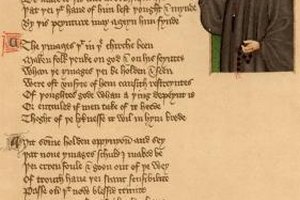 Þat þei þt haue of him lest þought & mynde
By þis peynture may ageyn him fynde
The ymages þt in þe chirche been
Maken folk þenke on god & on his seyntes
Whan þe ymages þei be holden & seen
Were oft vnsyte of hem causith restreyntes
Of þoughtes gode whan a þing depeynt is
Or entailed if men take of it heede
Thoght of þe lyknesse it wil in hym brede
Yit some holden oppynyoun and sey
Þat none ymages schuld I maked be
Þei erren foule & goon out of þe wey
Of trouth haue þei scant sensibilite
Passe ouer þt now blessid trinite